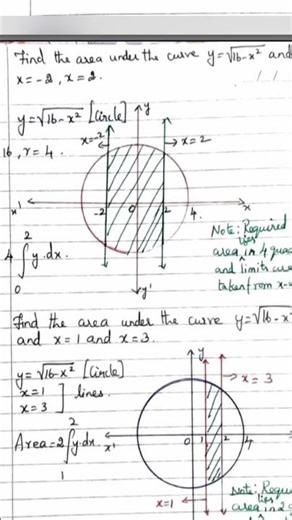 Find the area under the curve y=√16-x² and
x=-2, x=2.
y=√16-x² [Circle]
16, r=4.
y
x=-2
→ x=2
x'
-2
0
2
4.
x
y'
4 ∫₀² y.dx.
Note: Required
lies
area in 4 quad
and limits are
taken from x-a
Find the area under the curve y=√16-x²
and x=1 and x=3.
y=√16-x² [Circle]
x=1
x=3 ] lines.
Area=2 ∫₁² y.dx.
y
→ x=3
x'
0
1
2
4
x=1 ←
Note: Requi
lies
area in 2 q